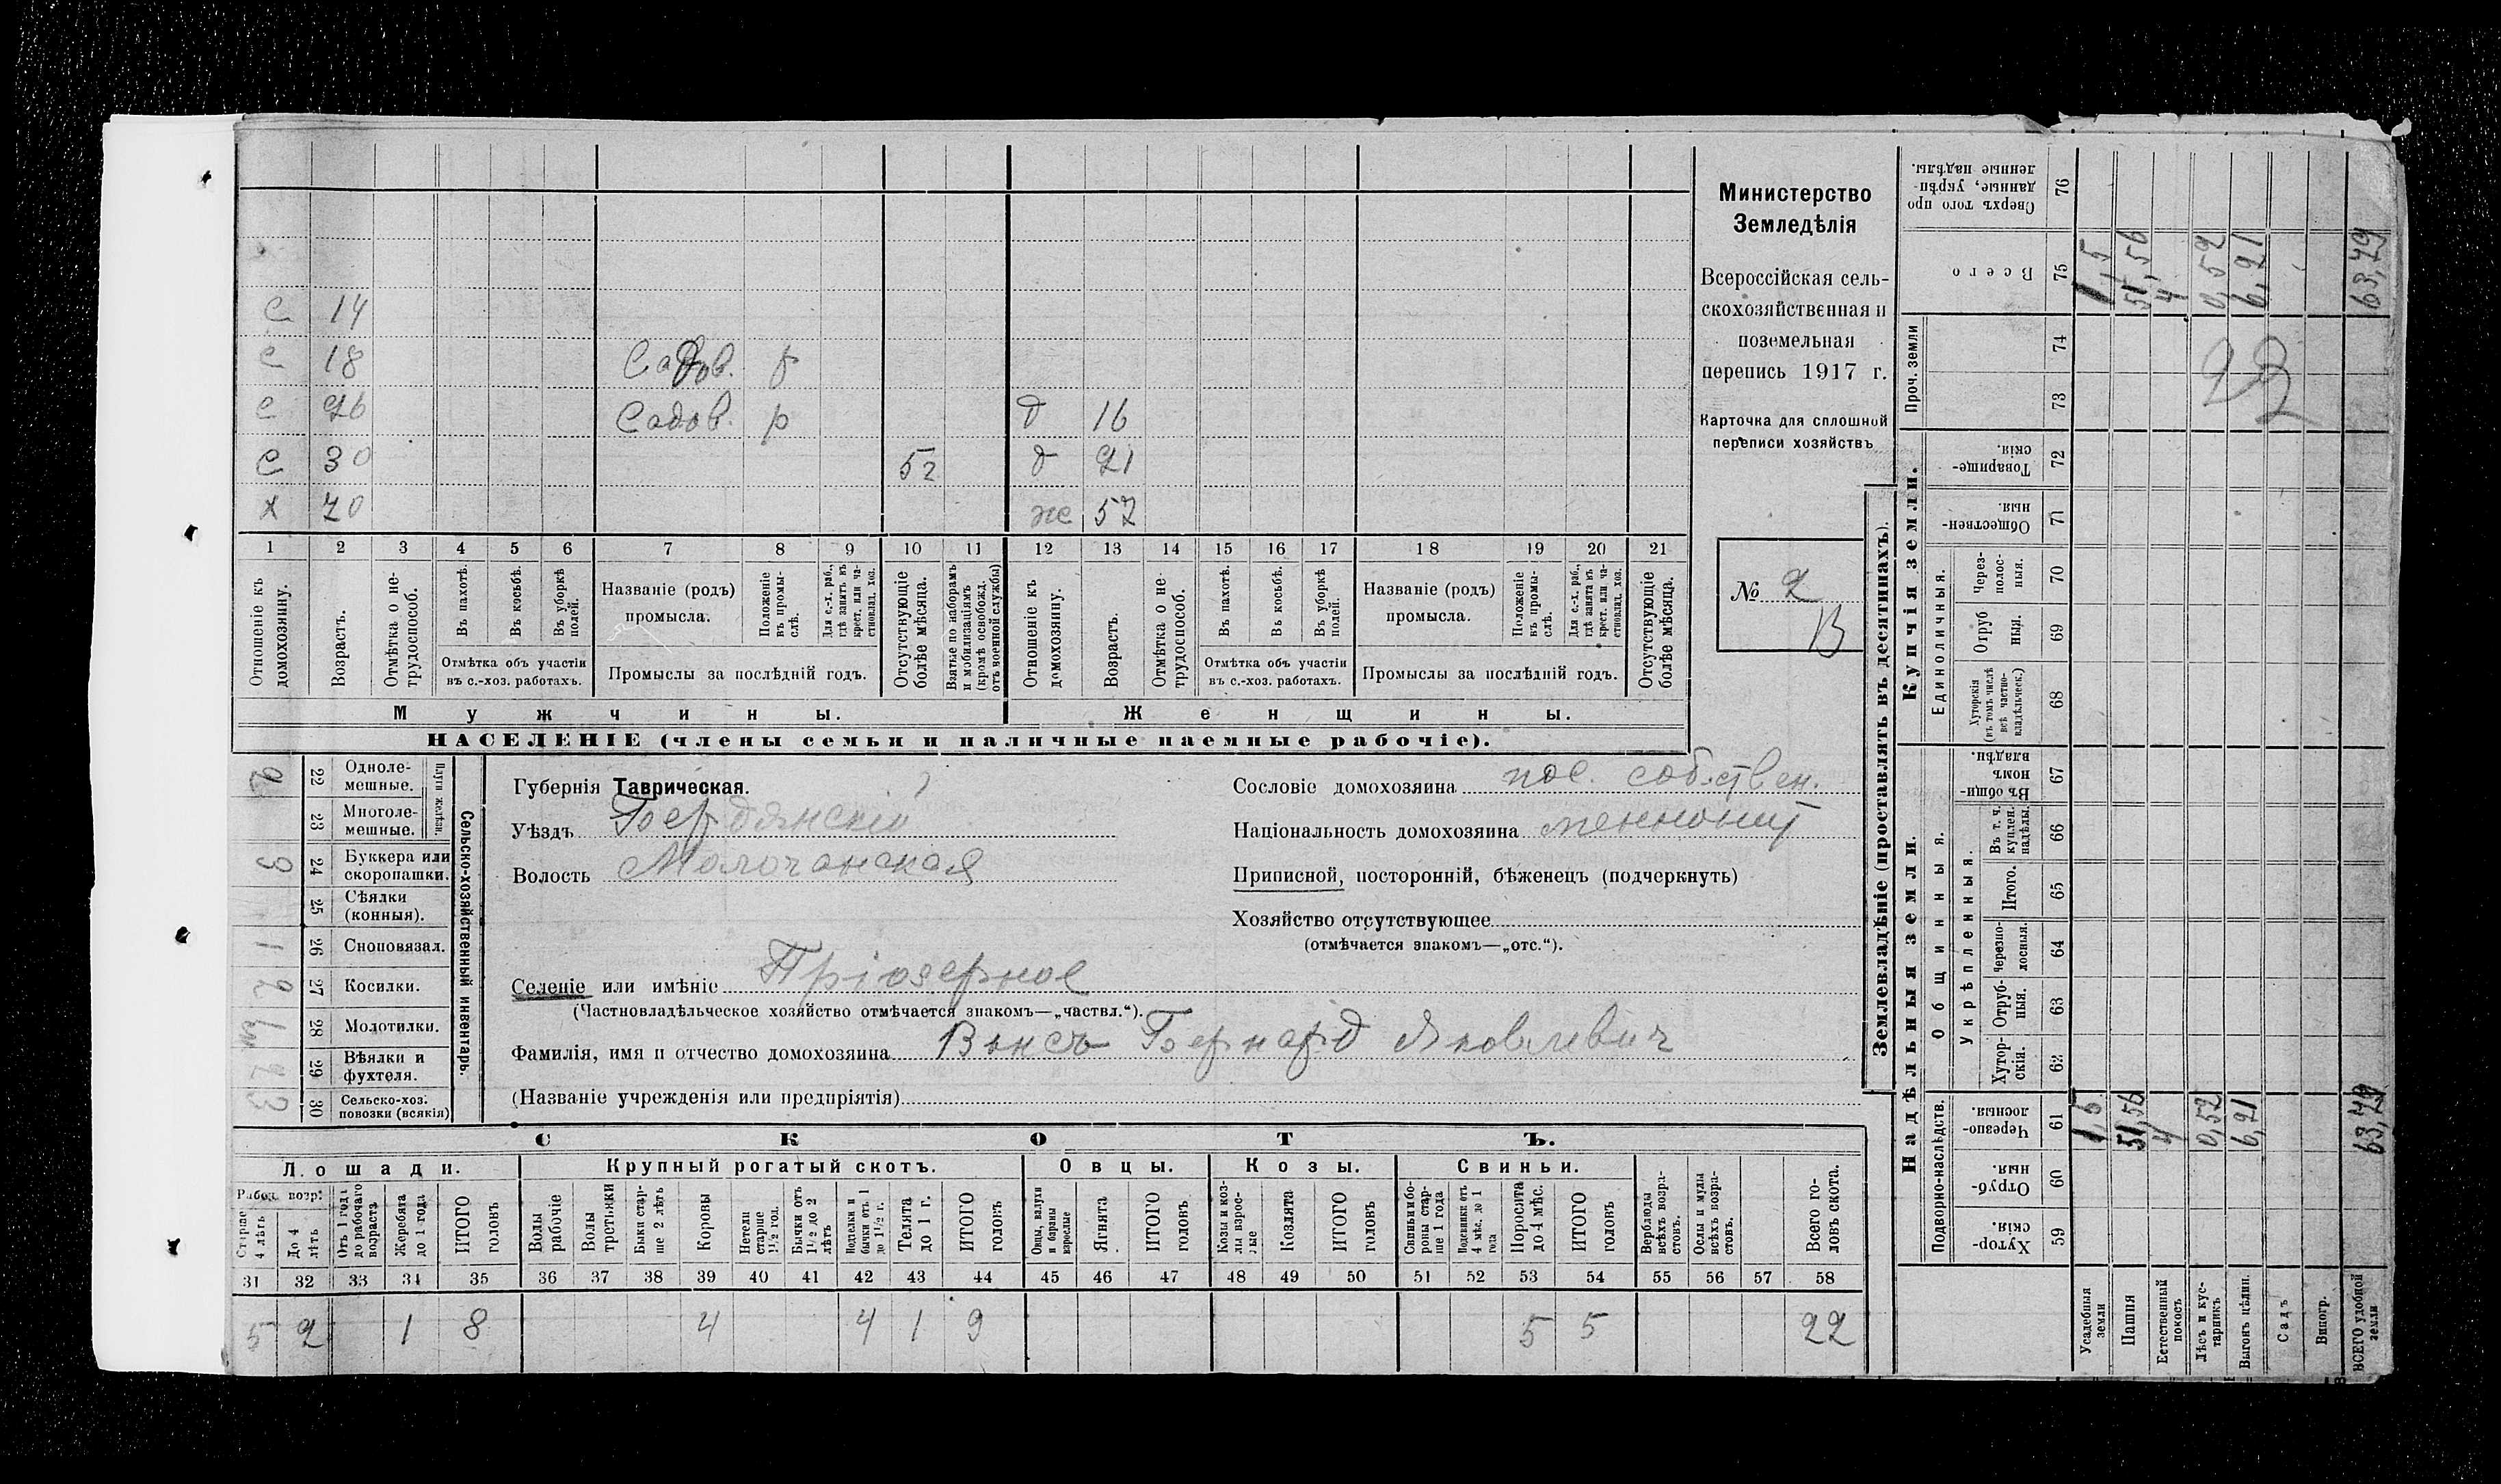 Министерство
Земледѣлія
Всероссійская сель-
скохозяйственная и
поземельная
перепись 1917 г.
Карточка для сплошной
переписи хозяйствъ
№ 2
В
С 14
С 18 Садов. р
С 26 Садов. р д 16
С 30 52 д 21
х 70 же 57
1 2 3 4 5 6 7 8 9 10 11 12 13 14 15 16 17 18 19 20 21
Отношеніе къ домохозяину.
Возрастъ.
Отмѣтка о не-трудоспособ.
Въ пахотѣ.
Въ косьбѣ.
Въ уборкѣ полей.
Отмѣтка объ участіи
въ с.-хоз. работахъ.
Названіе (родъ)
промысла.
Положеніе въ промы-слѣ.
Для с.-х. раб., гдѣ занятъ въ крест. или ча-стновлад. хоз.
Промыслы за послѣдній годъ.
Отсутствующіе болѣе мѣсяца.
Взятые по наборамъ и мобилизаціямъ (кромѣ освобожд. отъ военной службы)
Отношеніе къ домохозяину.
Возрастъ.
Отмѣтка о не-трудоспособ.
Въ пахотѣ.
Въ косьбѣ.
Въ уборкѣ полей.
Отмѣтка объ участіи
въ с.-хоз. работахъ.
Названіе (родъ)
промысла.
Положеніе въ промы-слѣ.
Для с.-х. раб., гдѣ занята въ крест. или ча-стновлад. хоз.
Промыслы за послѣдній годъ.
Отсутствующіе болѣе мѣсяца.
Мужчины. Женщины.
НАСЕЛЕНІЕ (члены семьи и наличные наемные рабочіе).
Сельско-хозяйственный инвентарь.
Плуги желѣзн.
2 22 Одноле-мешные.
23 Многоле-мешные.
3 24 Буккера или скоропашки.
25 Сѣялки (конныя).
1 26 Сноповязал.
2 27 Косилки.
28 Молотилки.
2 29 Вѣялки и фухтеля.
3 30 Сельско-хоз. повозки (всякія)
Губернія Таврическая.
Уѣздъ Бердянскій
Волость Молочанская
Сословіе домохозяина пос. собствен.
Національность домохозяина меннонит
Приписной, посторонній, бѣженецъ (подчеркнуть)
Хозяйство отсутствующее
(отмѣчается знакомъ—„отс.“).
Селеніе или имѣніе Пріозерное
(Частновладѣльческое хозяйство отмѣчается знакомъ—„частвл.“).
Фамилія, имя и отчество домохозяина Винсъ Бернард Яковлевич
(Названіе учрежденія или предпріятія)
СКОТЪ.
Лошади. Крупный рогатый скотъ. Овцы. Козы. Свиньи.
Рабоч. возр.
Старше 4 лѣтъ
До 4 лѣтъ
Отъ 1 года до рабочаго возраста
Жеребята до 1 года
ИТОГО головъ
Волы рабочіе
Волы
Быки стар-ше 2 лѣтъ
Коровы
Нетели старше 1½ год.
Бычки отъ 1½ до 2 лѣтъ
бычки отъ 1 до 1½ г.
Телята до 1 г.
ИТОГО головъ
Овцы, валухи и бараны взрослые
Ягнята
ИТОГО головъ
Козы и коз-лы взрос-лые
Козлята
ИТОГО головъ
Свиньи и бо-ровы стар-ше 1 года
Подсвинки отъ 4 мѣс. до 1 года
Поросята до 4 мѣс.
ИТОГО головъ
Верблюды всѣхъ возра-стовъ.
Ослы и мулы всѣхъ возра-стовъ.
Всего го-ловъ скота.
31 32 33 34 35 36 37 38 39 40 41 42 43 44 45 46 47 48 49 50 51 52 53 54 55 56 57 58
5 2 1 8 4 4 1 9 5 5 22
Землевладѣніе (проставлять въ десятинахъ).
Надѣльныя земли. Купчія земли. Проч. земли
Подворно-наслѣдств. Общинныя. Единоличныя.
Укрѣпленныя.
Хутор-скія. 59
Отруб-ныя. 60
Черезпо-лосныя. 61
Хутор-скія. 62
Отруб-ныя. 63
Черезпо-лосныя. 64
Итого. 65
Въ т. ч. куплен. надѣлы 66
Въ общин-номъ владѣн. 67
Хуторскія (въ томъ числѣ всѣ частно-владѣльческ.) 68
Отруб ныя. 69
Через-полос-ныя. 70
Обществен-ныя. 71
Товарище-скія 72
73
74
Всего 75
Сверхъ того про данные, укрѣп-ленные надѣлы. 76
Усадебныя земли 1,5 1,5
Пашня 51,56 51,56
Естественный покосъ 4 4
Лѣсъ и кус-тарникъ 0,52 0,52
Выгонъ цѣлин. 6,21 6,21
Садъ
Виногр.
ВСЕГО удобной земли 63,79 63,79
22